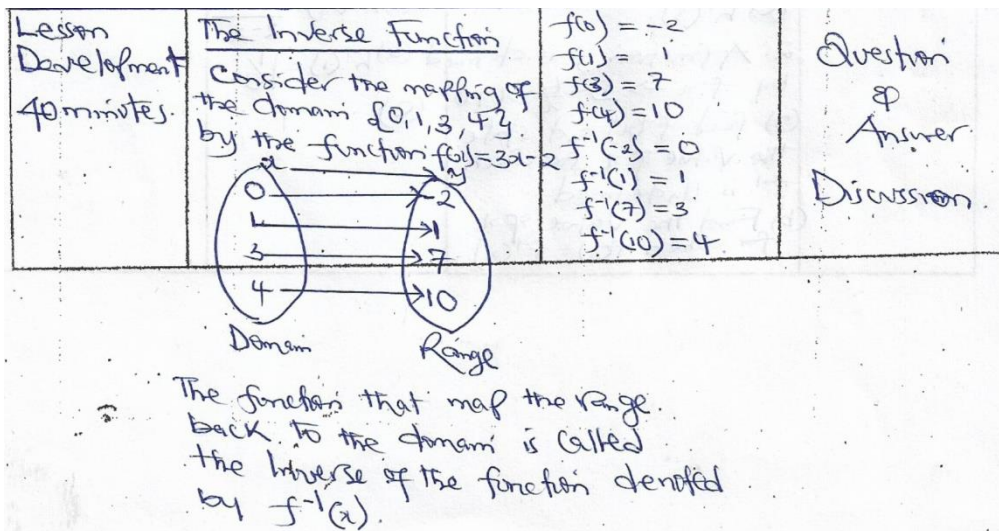 Lesson
Development
40 minutes.
The Inverse Function
Consider the mapping of
the domain {0, 1, 3, 4}
by the function f(x)=3x-2
x y
0 -2
1 1
3 7
4 10
Domain Range
f(0) = -2
f(1) = 1
f(3) = 7
f(4) = 10
f⁻¹(-2) = 0
f⁻¹(1) = 1
f⁻¹(7) = 3
f⁻¹(10) = 4
Question
&
Answer
Discussion
The function that map the range
back to the domain is called
the Inverse of the function denoted
by f⁻¹(x).